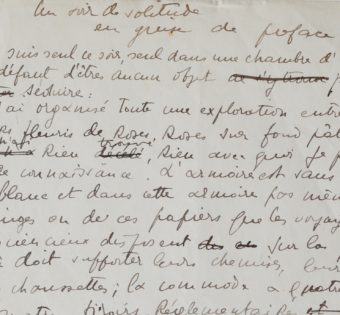 Un soir de solitude
en guise de préface
suis seul ce soir, seul dans une chambre d'
défaut d'êtres aucun objet
séduire :
ai organisé toute une exploration entre
fleuris de Roses, Roses sur fond pâl
Rien trouvé, Rien avec quoi je p
e connaissance. L'armoire est sans
blanc et dans cette armoire pas mêm
inges ou de ces papiers que les voyag
uencieux disposent sur la
doit supporter leurs chemises, leur
chaussettes ; la commode a quatre
tiroirs Réglementaires et